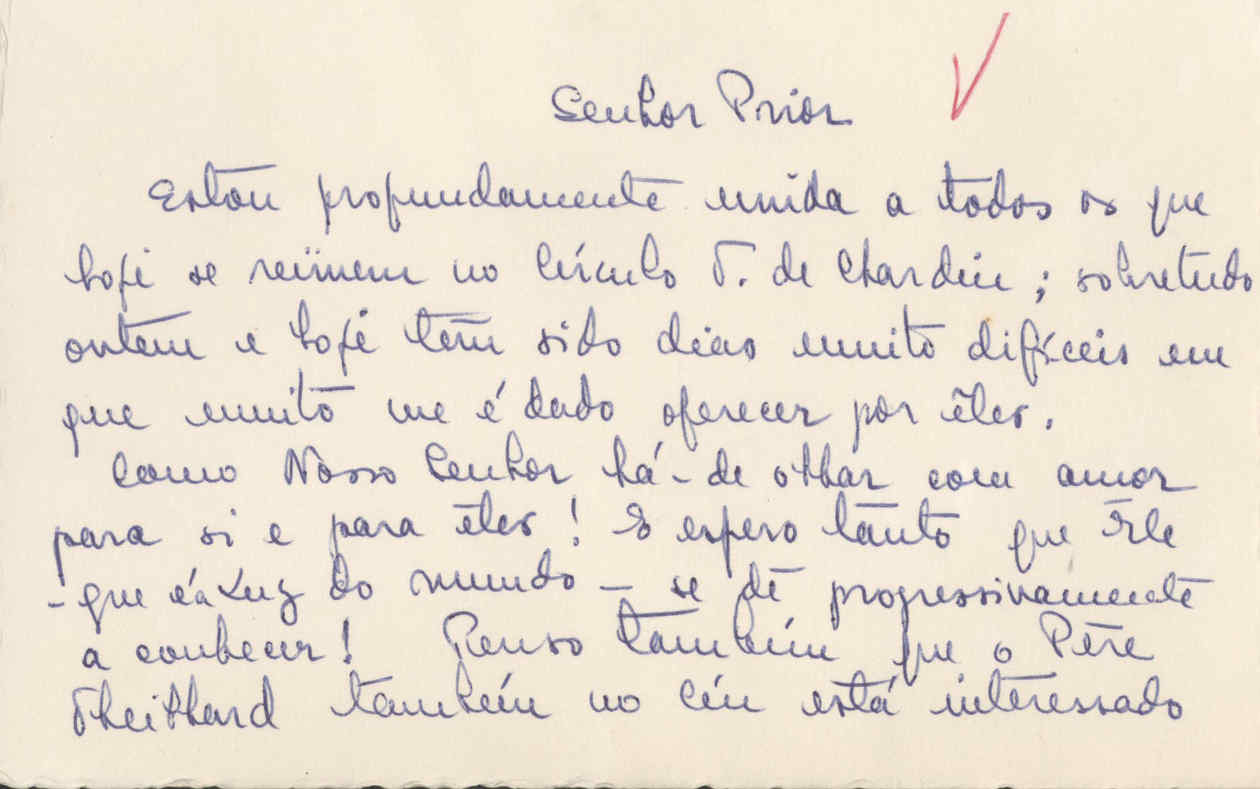 Senhor Prior
Estou profundamente unida a todos os que
hoje se reünem no Círculo T. de Chardin ; sobretudo
ontem e hoje têm sido dias muito difíceis em
que muito me é dado oferecer por êles.
Como Nosso Senhor há-de olhar com amor
para si e para êles ! E espero tanto que Êle
- que é a Luz do mundo - se dê progressivamente
a conhecer ! Penso também que o Père
Theilhard também no céu está interessado